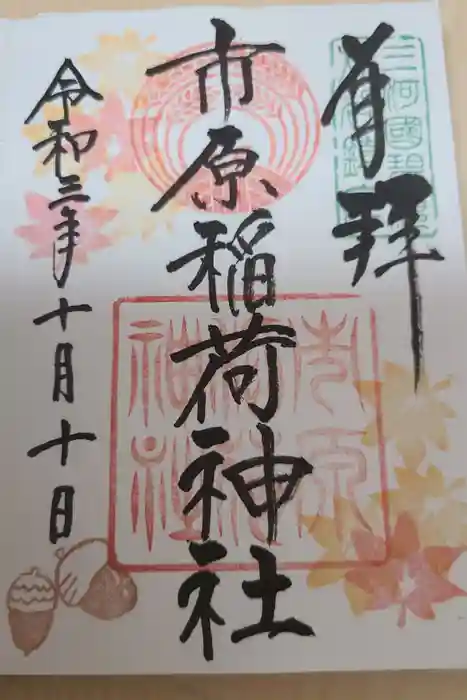 三河國碧
奉拝
市原稲荷神社
市原稲荷神社
令和三年十月十日